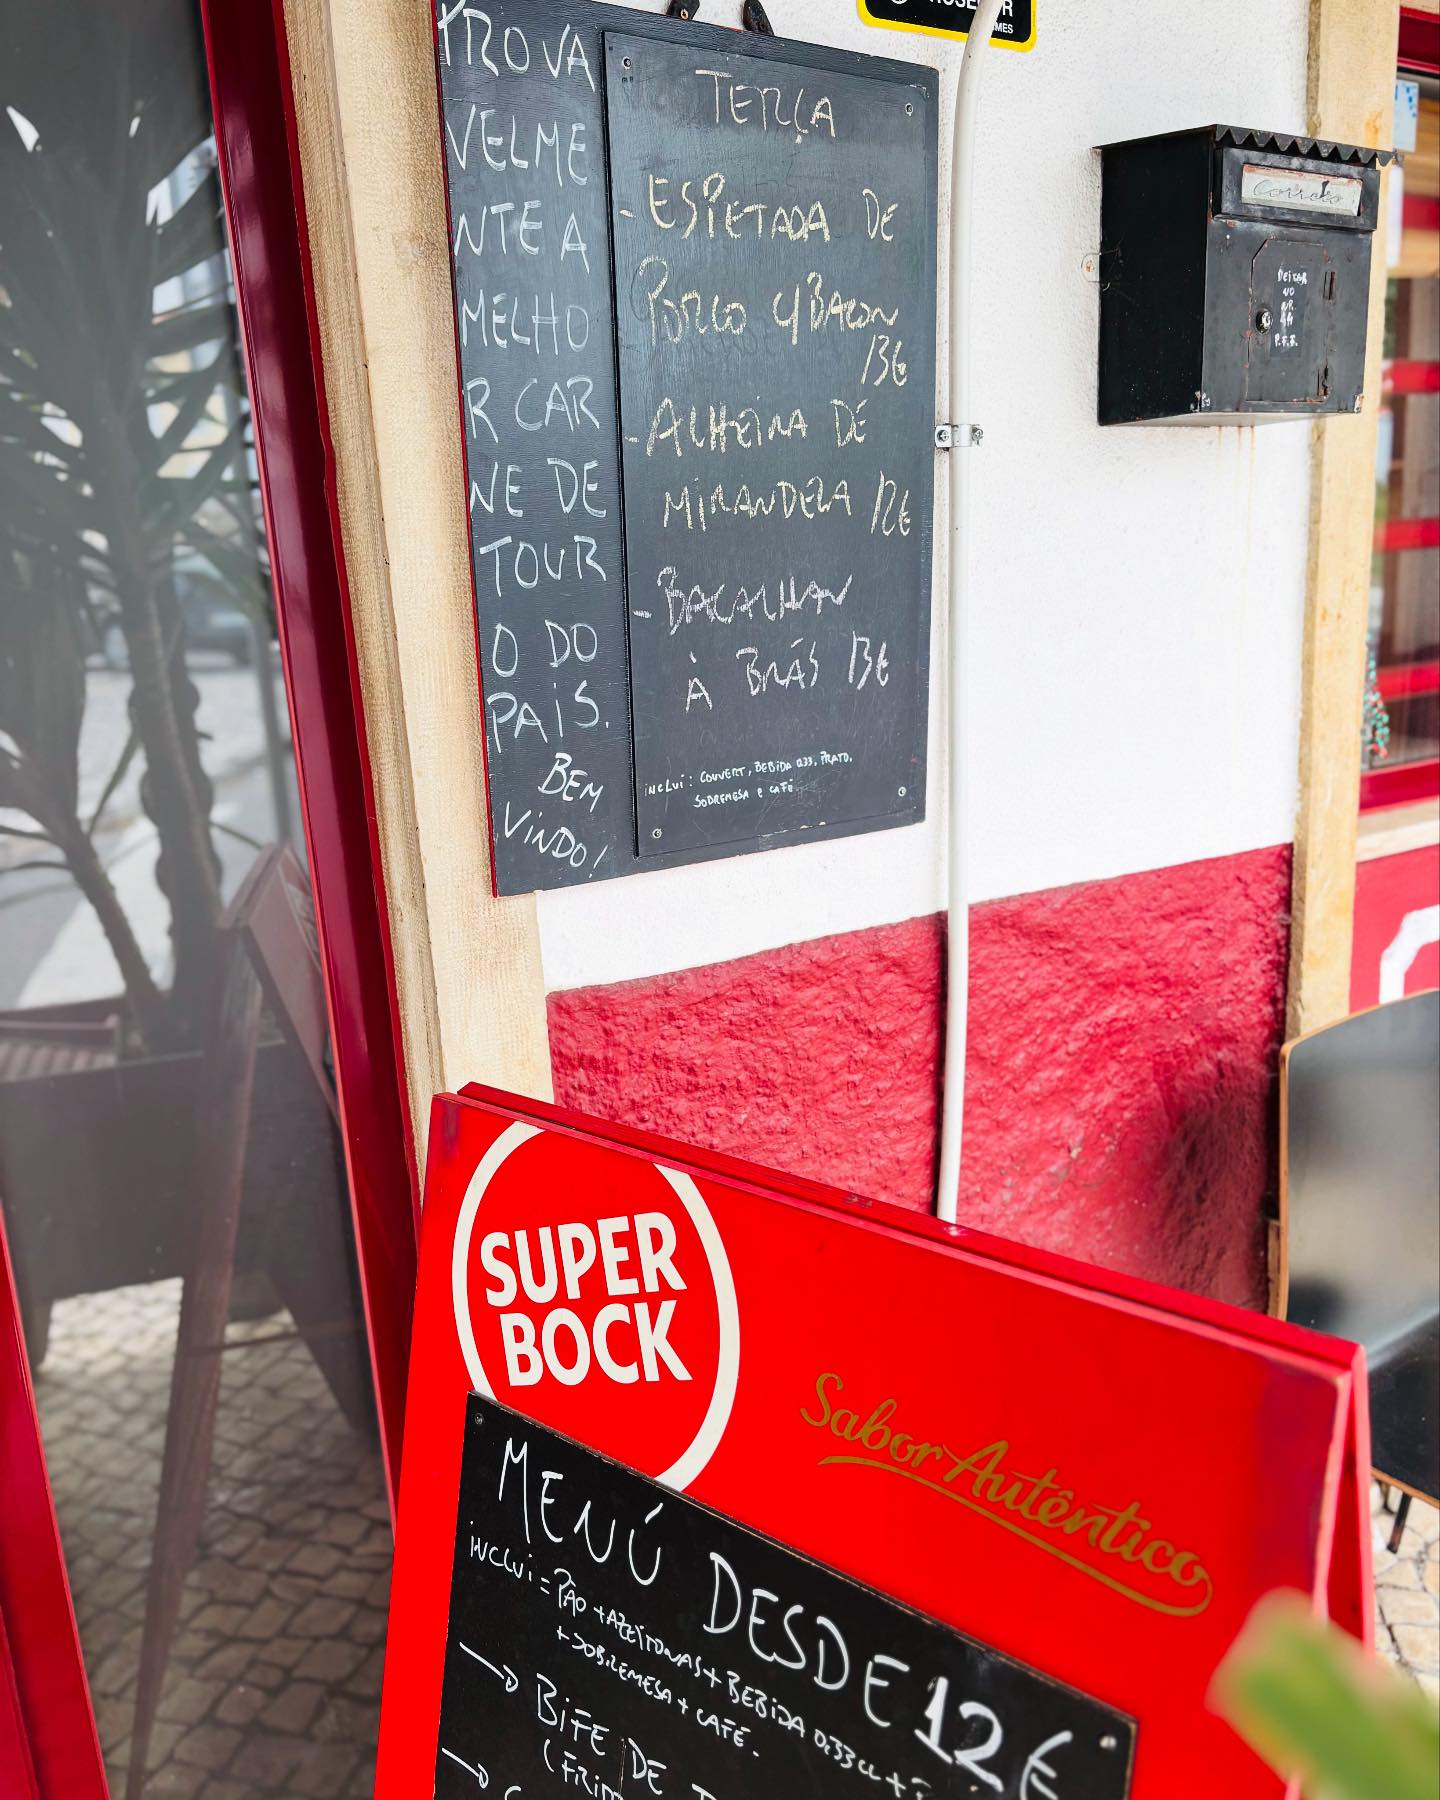 PROVA
VELME
NTE A
MELHO
R CAR
NE DE
TOUR
O DO
PAIS.
BEM
VINDO!
TERÇA
- ESPETADA DE
PORCO C/BACON
13€
- ALHEIRA DE
MIRANDELA 12€
- BACALHAU
À BRÁS 13€
INCLUI: COUVERT, BEBIDA 0.33, PRATO,
SOBREMESA E CAFÉ.
Correio
DEIXAR
NO
NR.
44
P.F.B.
SUPER
BOCK
Sabor Autêntico
MENÚ DESDE 12€
INCLUI = PÃO + AZEITONAS + BEBIDA 0,33CL +
+ SOBREMESA + CAFÉ.
BIFE DE